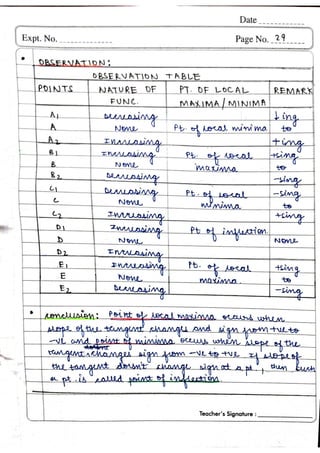 Date
Expt. No.
Page No. 29
• OBSERVATION:
OBSERVATION TABLE
POINTS NATURE OF FUNC. PT. OF LOCAL MAXIMA/MINIMA REMARK
A1 Decreasing ↓ing
A None Pt. of local minima to
A2 Increasing +ing
B1 Increasing Pt. of local +ing
B None maxima to
B2 Decreasing -ing
C1 Decreasing Pt. of local -ing
C None minima to
C2 Increasing +ing
D1 Increasing Pt of inflection
D None None
D2 Increasing
E1 Increasing Pt. of local +ing
E None maxima to
E2 Decreasing -ing
• conclusion: Point of local maxima occurs when
slope of the tangent changes and sign from +ve to
-ve and point of minima occurs when slope of the
tangent changes sign from -ve to +ve If slope of
the tangent doesn't change sign at a pt., then such
a pt. is called point of inflection.
Teacher's Signature :